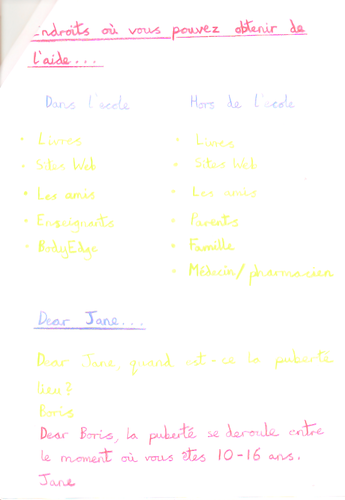 Endroits où vous pouvez obtenir de
l'aide...
Dans l'ecole
Hors de l'ecole
• Livres
• Sites Web
• Les amis
• Enseignants
• BodyEdge
• Livres
• Sites Web
• Les amis
• Parents
• Famille
• Médecin/pharmacien
Dear Jane...
Dear Jane, quand est-ce la puberté
lieu?
Boris
Dear Boris, la puberté se deroule entre
le moment où vous êtes 10-16 ans.
Jane